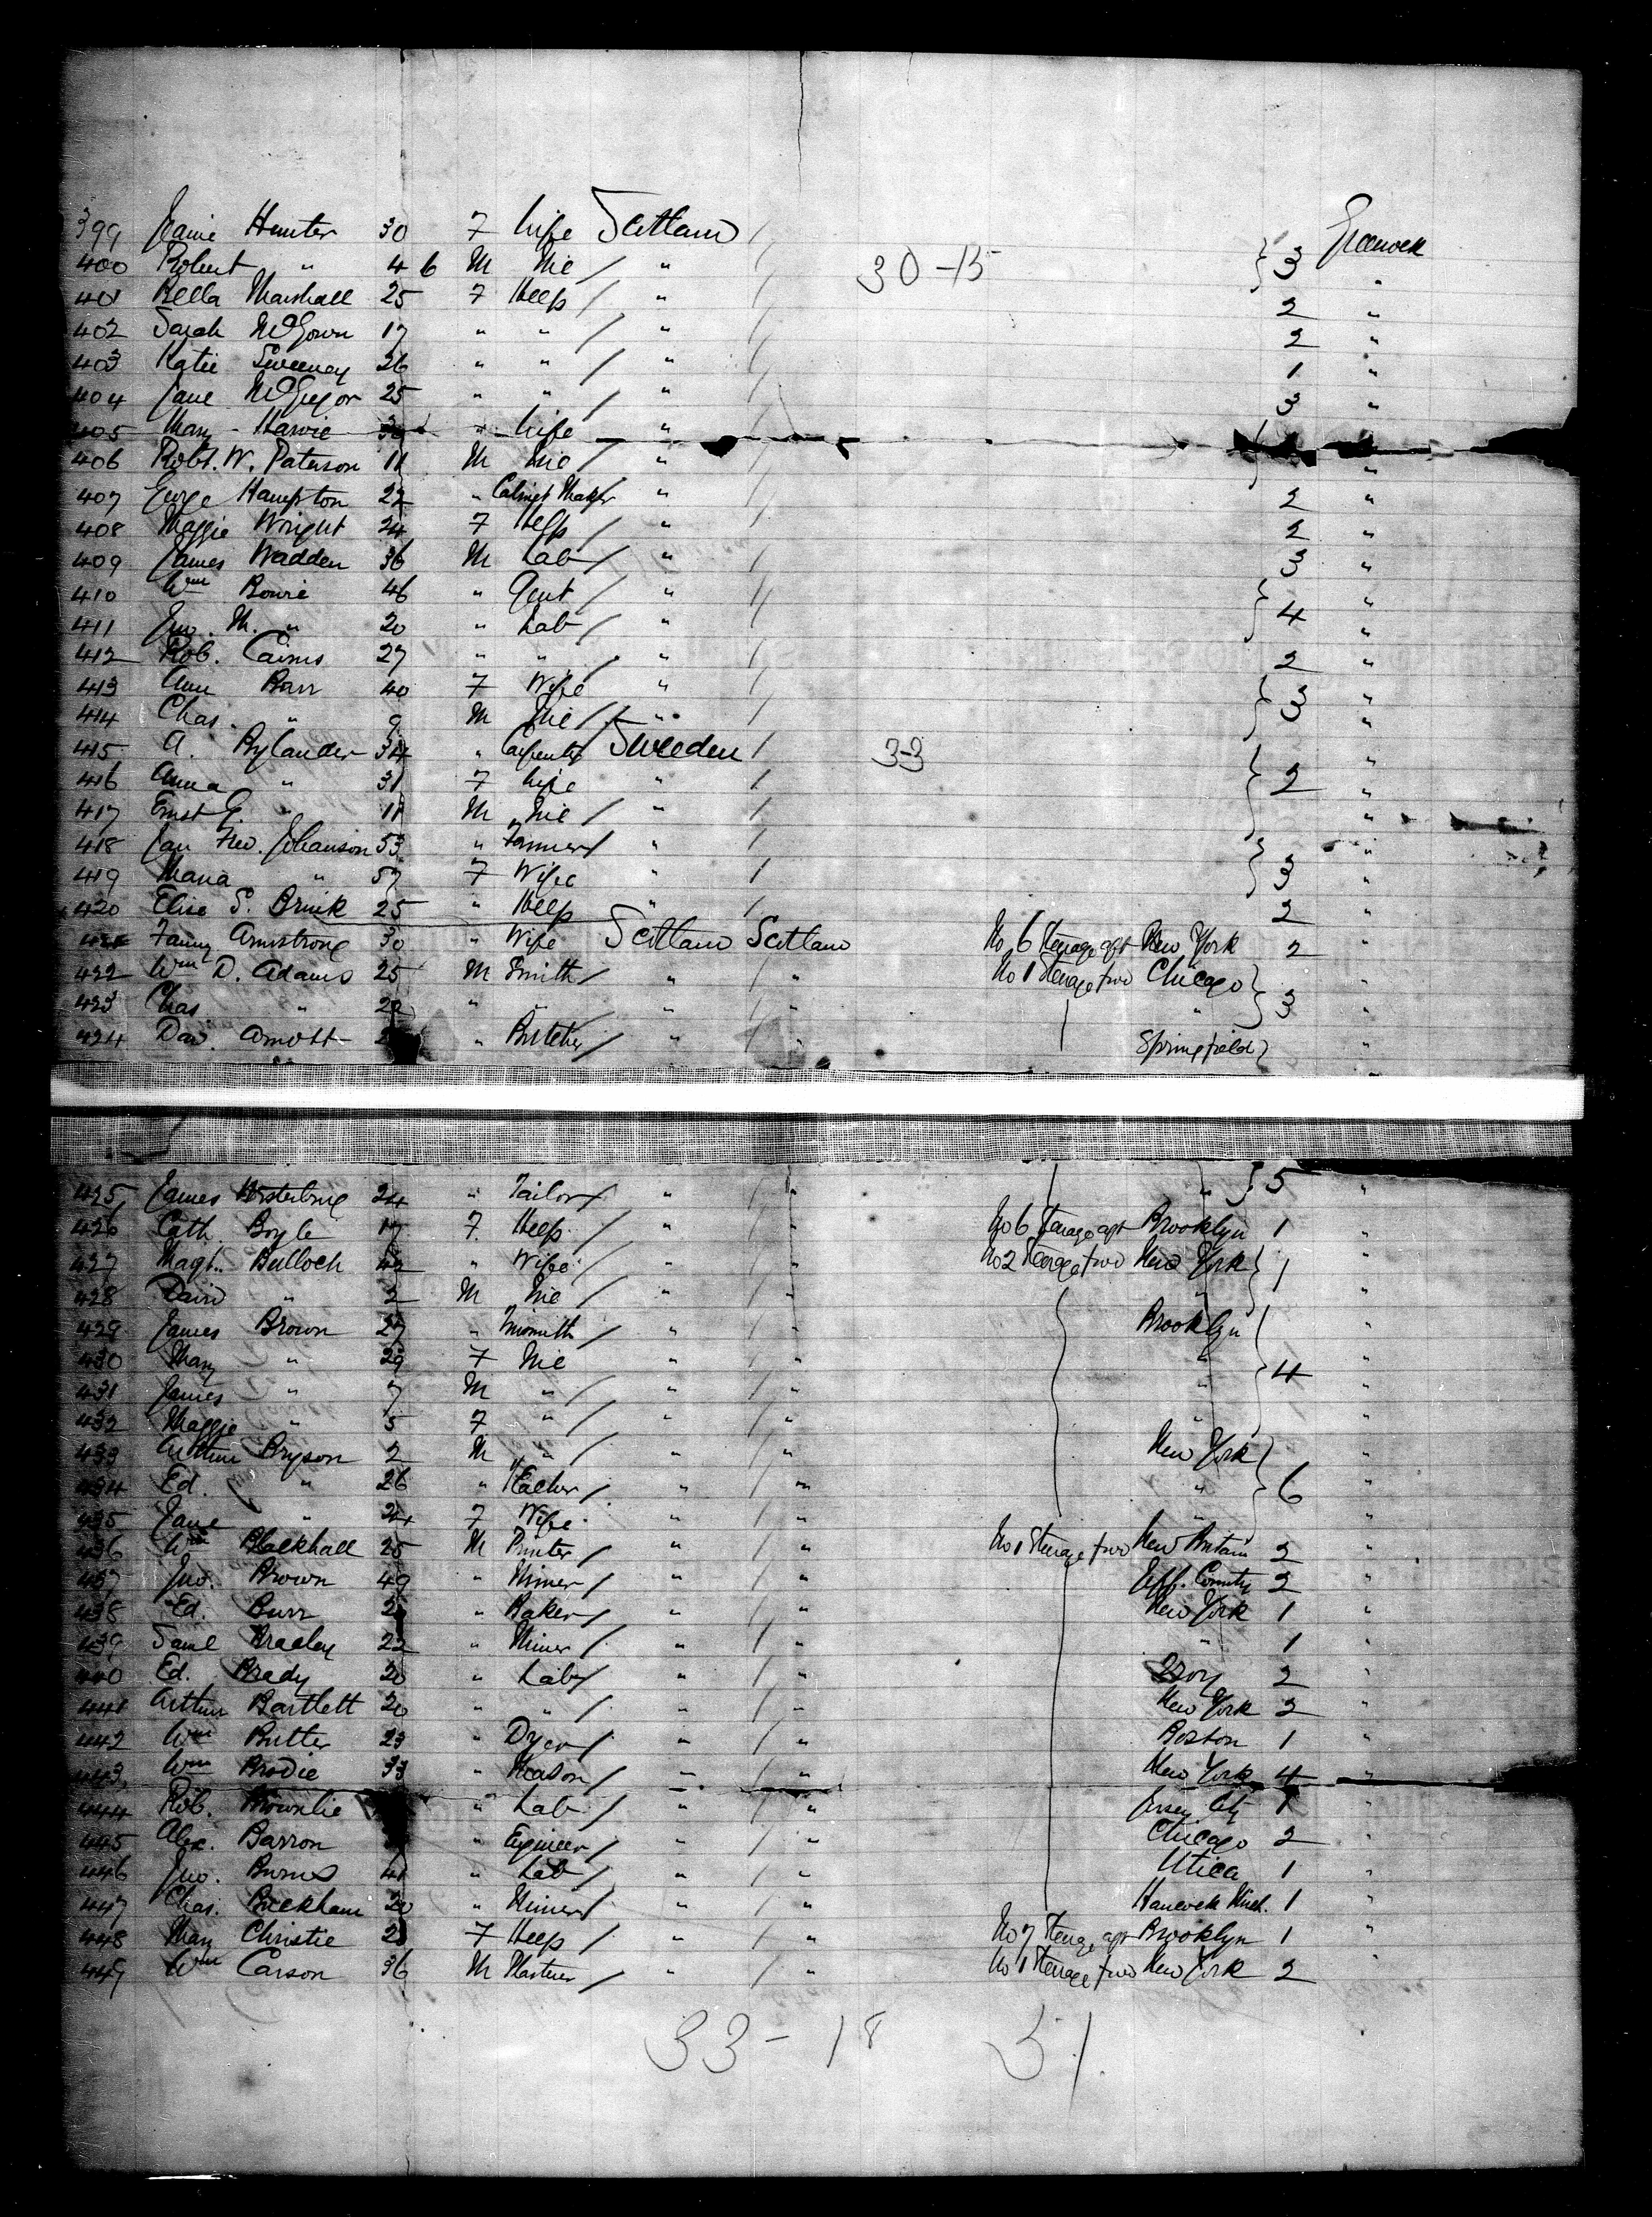 399 Jeanie Hunter 30 F Wife Scotland / Greenock
400 Robert " 4 6 M Nil / " / 30-15 } 3 "
401 Bella Marshall 25 F Help / " / 2 "
402 Sarah McGown 17 " " / " / 2 "
403 Katie Sweeney 26 " " / " / 1 "
404 Jane McGregor 25 " " / " / 3 "
405 Mary Harvie " Wife "
406 Robt. W. Paterson 11 M Nil / " / "
407 George Hampton 22 " Cabinet Maker " / 2 "
408 Maggie Wright 24 F Help / " / 2 "
409 James Wadden 36 M Lab / " / 3 "
410 Wm Bowie 46 " Gent / " / "
411 Jno. M. " 20 " Lab / " / } 4 "
412 Rob. Cairns 27 " " / " / 2 "
413 Ann Barr 40 F Wife " / "
414 Chas. " 9 M Nil / " / } 3 "
415 A. Rylander 34 " Carpenter Sweeden / 33 "
416 Anna " 31 F Wife " / } 2 "
417 Ernst G. " 11 M Nil / " / "
418 Jan Fred. Johanson 53 " Farmer / " / "
419 Maria " 57 F Wife " / } 3 "
420 Elise S. Brink 25 " Help " / 2 "
421 Fanny Armstrong 30 " Wife Scotland Scotland No 6 Steerage aft New York 2 "
422 Wm D. Adams 25 M Smith / " / " No 1 Steerage fwd Chicago "
423 Chas " 22 " " " / " " } 3 "
424 Dav. Arnott " Butcher / " / " Springfield "
425 James 24 " Tailor / " / " " } 5 "
426 Cath. Boyle 17 F. Help / " / " No 6 Steerage aft Brooklyn 1 "
427 Magt. Bulloch 42 " Wife " / " No 2 Steerage fwd New York } 1 "
428 David " 2 M Nil / " / " " "
429 James Brown 27 " Tinsmith / " / " Brooklyn "
430 Mary " 29 F Nil " / " " } 4 "
431 James " 7 M " / " / " " "
432 Maggie " 5 F " / " / " " "
433 Arthur Bryson 2 M " / " / " New York "
434 Ed. " 26 " / " / " " } 6 "
435 Jane " 24 F Wife " / " " "
436 Wm Blackhall 25 M Printer / " / " No 1 Steerage fwd New Britain 2 "
437 Jno. Brown 49 " Miner / " / " Jeff. County 2 "
438 Ed. Burr " Baker / " / " New York 1 "
439 Saml Bradley 22 " Miner / " / " " 1 "
440 Ed. Brady 20 " Lab / " / " Troy 2 "
441 Arthur Bartlett 20 " " / " / " New York 2 "
442 Wm Butter 23 " Dyer / " / " Boston 1 "
443 Wm Brodie 33 " Mason / " / " New York 4 "
444 Rob. Brownlie " Lab / " / " Jersey City 1 "
445 Alex. Barron " Engineer / " / " Chicago 2 "
446 Jno. Burns 41 " Lab / " / " Utica 1 "
447 Chas. Buckham 20 " Miner / " / " Hancock Mich. 1 "
448 Mary Christie F Help / " / " No 7 Steerage aft Brooklyn 1 "
449 Wm Carson 36 M / " / " No 1 Steerage fwd New York 2 "
33-18 51